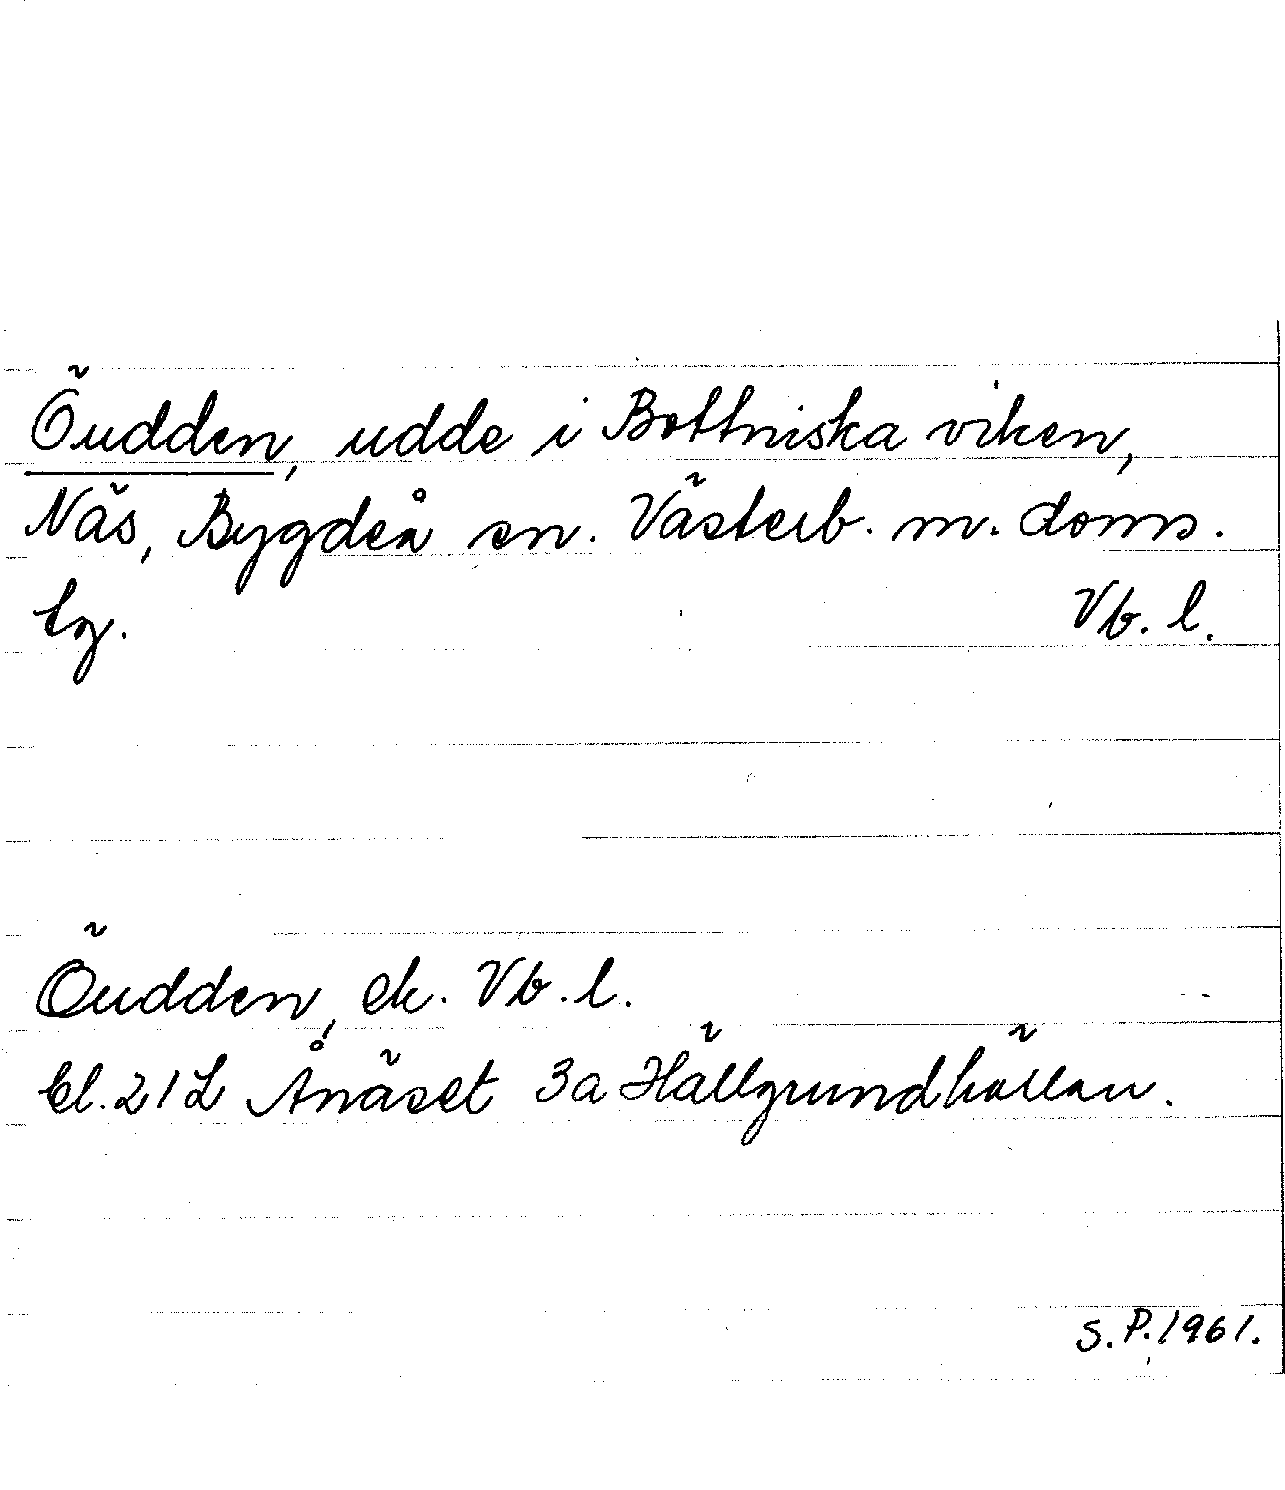 Öudden, udde i Bottniska viken,
Näs, Bygdeå sn. Västerb. m. doms.
lg. Vb. l.
Öudden, ek. Vb. l.
bl. 21 L Ånäset 3a Hällgrundhällan.
S.P. 1961.